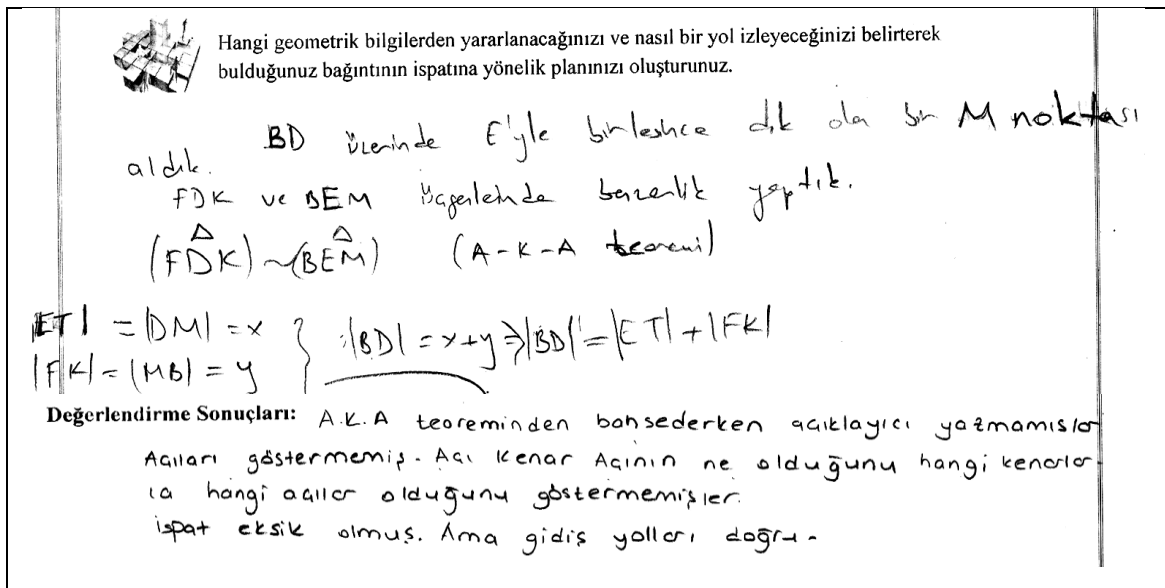 Hangi geometrik bilgilerden yararlanacağınızı ve nasıl bir yol izleyeceğinizi belirterek
bulduğunuz bağıntının ispatına yönelik planınızı oluşturunuz.
BD üzerinde E'yle birleşince dik olan bir M noktası
aldık.
FDK ve BEM üçgenlerinde benzerlik yaptık.
(FDK) ~ (BEM) (A-K-A teoremi)
|ET| = |DM| = x
|FK| = |MB| = y } |BD| = x+y ⇒ |BD| = |ET| + |FK|
Değerlendirme Sonuçları: A.K.A teoreminden bahsederken açıklayıcı yazmamışlar
Açıları göstermemiş. Açı Kenar Açının ne olduğunu hangi kenarlar
la hangi açılar olduğunu göstermemişler.
ispat eksik olmuş. Ama gidiş yolları doğru.